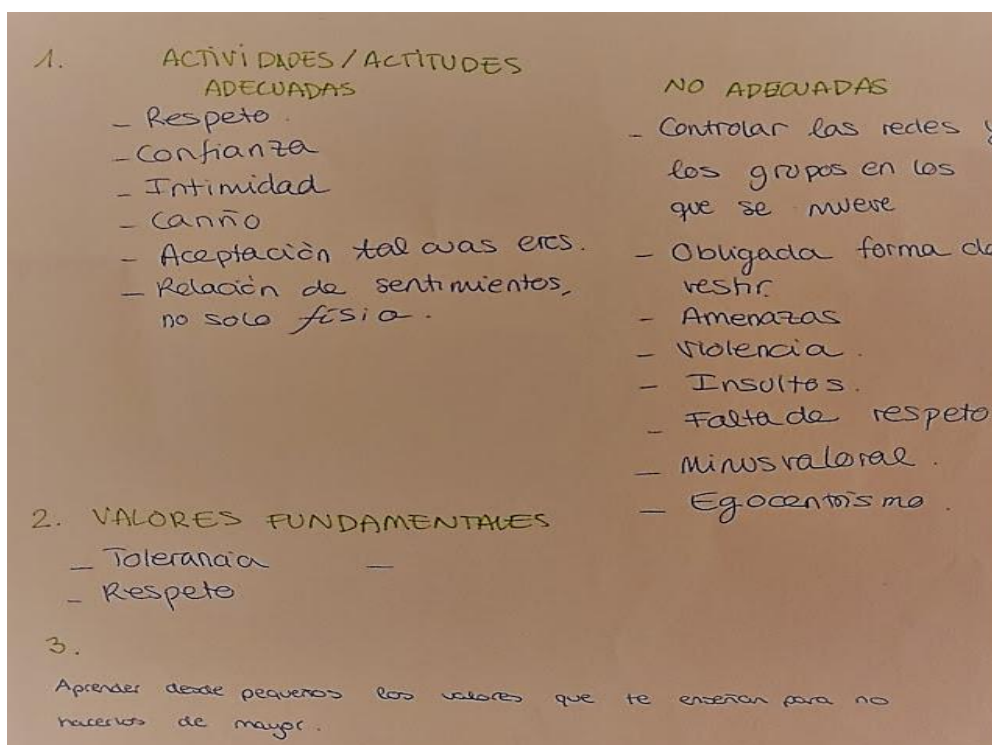 1. ACTIVIDADES/ACTITUDES
ADECUADAS
- Respeto.
- Confianza
- Intimidad
- Cariño
- Aceptación tal cuas eres.
- Relación de sentimientos,
no solo física.
NO ADECUADAS
- Controlar las redes y
los grupos en los
que se mueve
- Obligada forma de
vestir.
- Amenazas
- Violencia.
- Insultos.
- Falta de respeto
- Minusvaloral.
- Egocentrismo.
2. VALORES FUNDAMENTALES
- Tolerancia -
- Respeto
3.
Aprender desde pequeños los valores que te enseñan para no
hacerlos de mayor.